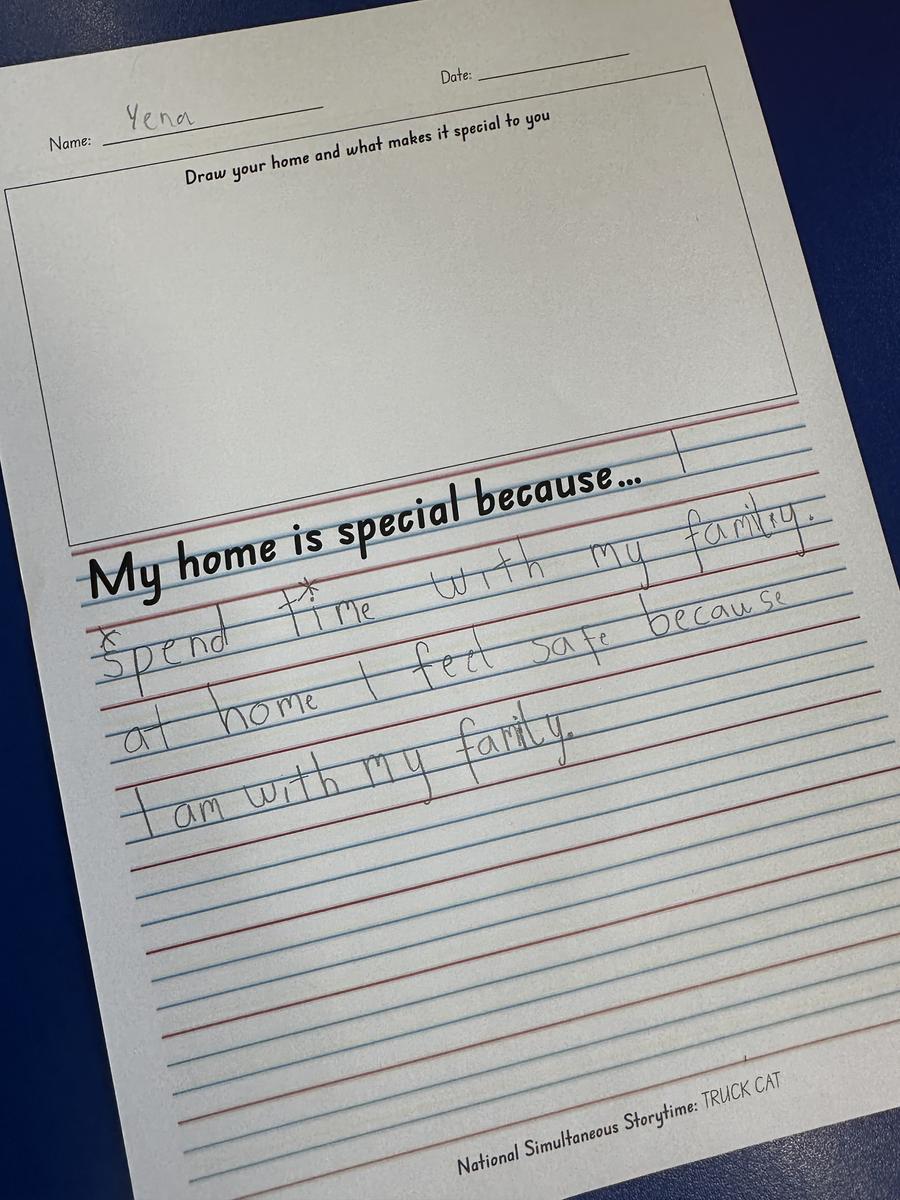 Name: Yena Date:
Draw your home and what makes it special to you
My home is special because... I
spend time with my family.
at home I feel safe because
I am with my family.
National Simultaneous Storytime: TRUCK CAT